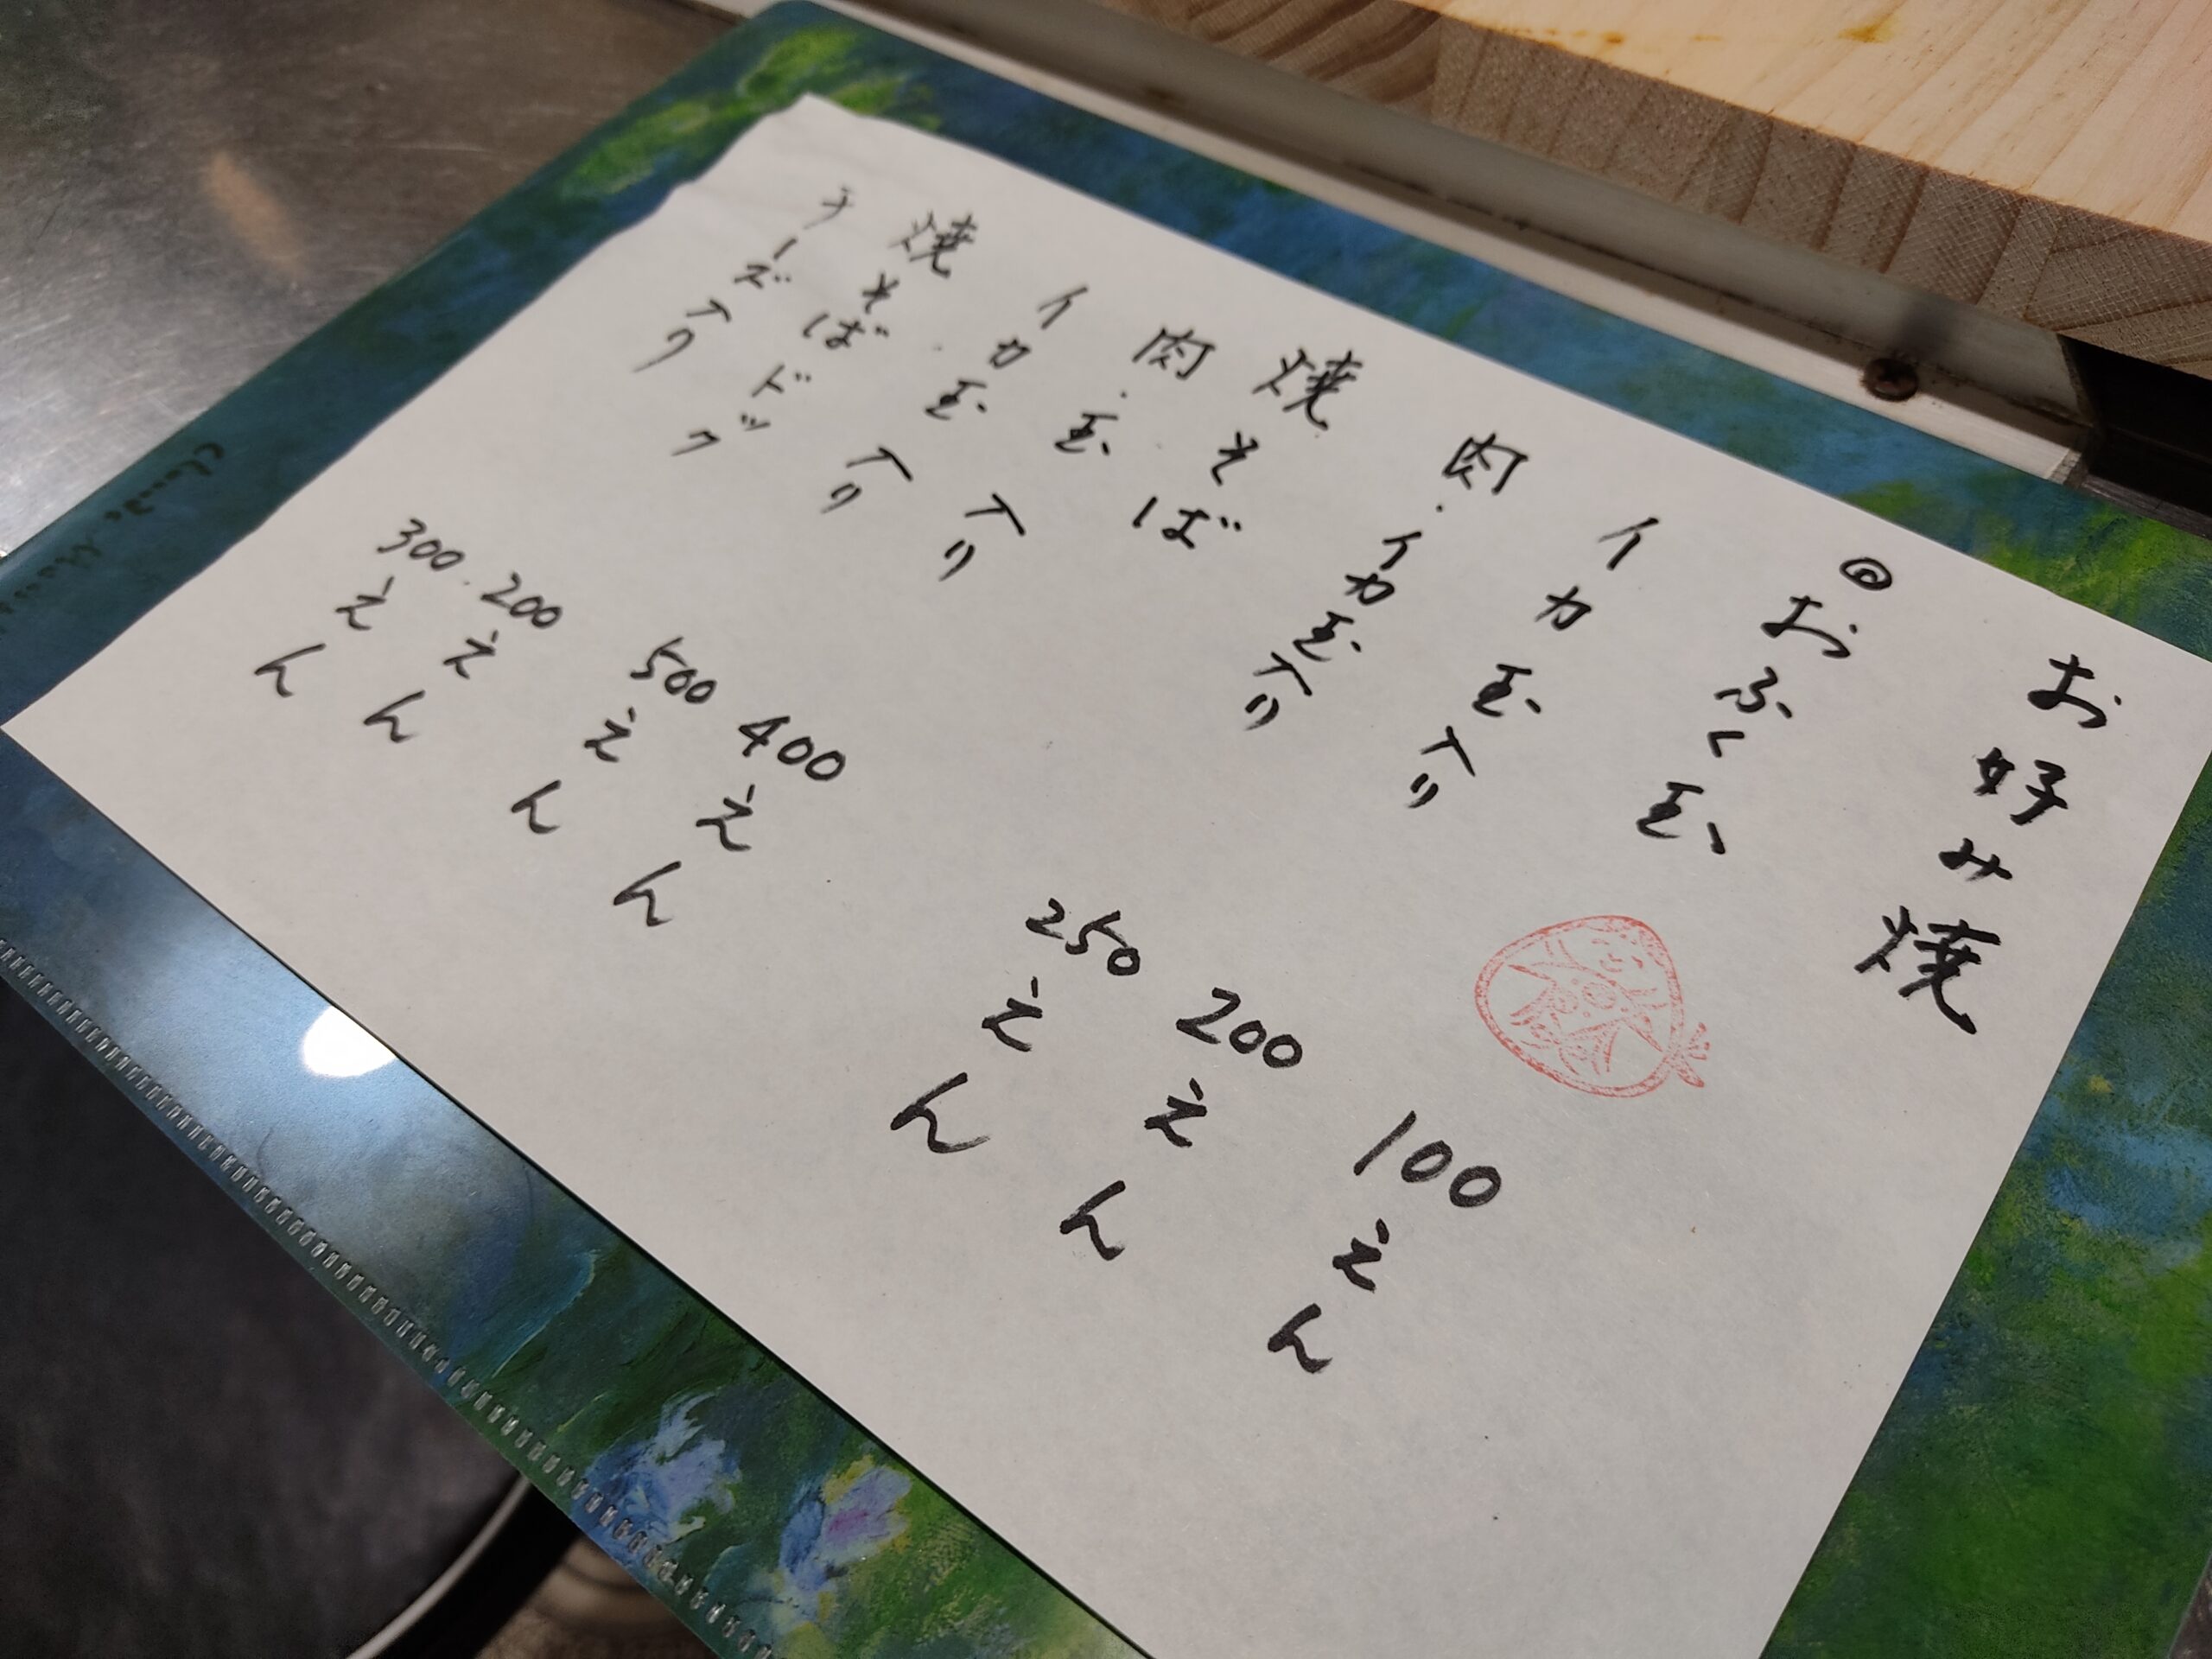 お好み焼
◎おふく玉 100えん
イカ玉入り 200えん
肉・イカ玉入り 250えん
焼そば
肉・玉入り 400えん
イカ玉入り 500えん
焼そばドッグ 200えん
チーズ入り 300えん
Claude Monet